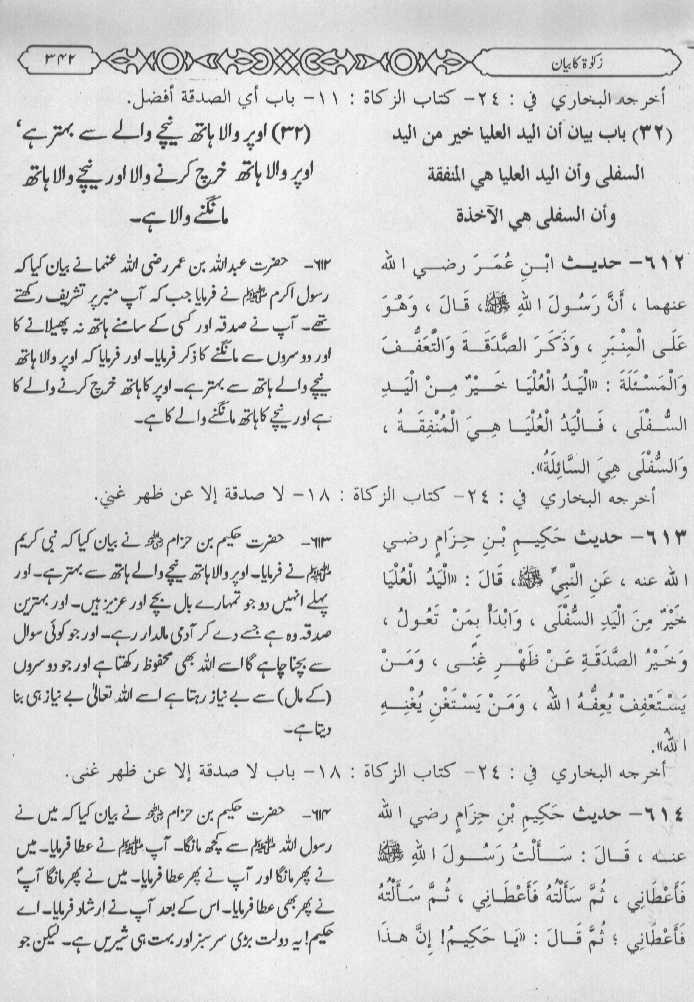 زکوٰۃ کا بیان
۳۴۲
أخرجه البخاري في : ٢٤- كتاب الزكاة : ١١- باب أي الصدقة أفضل.
(٣٢) باب بيان أن اليد العليا خير من اليد
السفلى وأن اليد العليا هي المنفقة
وأن السفلى هي الآخذة
(۳۲) اوپر والا ہاتھ نیچے والے سے بہتر ہے‘
اوپر والا ہاتھ خرچ کرنے والا اور نیچے والا ہاتھ
مانگنے والا ہے۔
٦١٢- حديث ابْنِ عُمَرَ رضي الله
عنهما ، أَنَّ رَسُولَ اللهِ ﷺ، قَالَ ، وَهُوَ
عَلَى الْمِنْبَرِ ، وَذَكَرَ الصَّدَقَةَ وَالتَّعَفُّفَ
وَالْمَسْئَلَةَ : «الْيَدُ الْعُلْيَا خَيْرٌ مِنْ الْيَدِ
السُّفْلَى ، فَالْيَدُ الْعُلْيَا هِيَ الْمُنْفِقَةُ ،
وَالسُّفْلَى هِيَ السَّائِلَةُ».
۶۱۲- حضرت عبداللہ بن عمر رضی اللہ عنہما نے بیان کیا کہ
رسول اکرم ﷺ نے فرمایا جب کہ آپ منبر پر تشریف رکھتے
تھے۔ آپ نے صدقہ اور کسی کے سامنے ہاتھ نہ پھیلانے کا
اور دوسروں سے مانگنے کا ذکر فرمایا۔ اور فرمایا کہ اوپر والا ہاتھ
نیچے والے ہاتھ سے بہتر ہے۔ اوپر کا ہاتھ خرچ کرنے والے کا
ہے اور نیچے کا ہاتھ مانگنے والے کا ہے۔
أخرجه البخاري في : ٢٤- كتاب الزكاة : ١٨- لا صدقة إلا عن ظهر غني.
٦١٣- حديث حَكِيمِ بْنِ حِزَامٍ رضي
الله عنه ، عَنِ النَّبِيِّ ﷺ، قَالَ : «الْيَدُ الْعُلْيَا
خَيْرٌ مِنَ الْيَدِ السُّفْلَى ، وَابْدَأْ بِمَنْ تَعُولُ ،
وَخَيْرُ الصَّدَقَةِ عَنْ ظَهْرِ غِنًى ، وَمَنْ
يَسْتَعْفِفْ يُعِفُّهُ اللهُ ، وَمَنْ يَسْتَغْنِ يُغْنِهِ
اللهُ».
۶۱۳- حضرت حکیم بن حزام رضی اللہ عنہ نے بیان کیا کہ نبی کریم
ﷺ نے فرمایا۔ اوپر والا ہاتھ نیچے والے ہاتھ سے بہتر ہے۔ اور
پہلے انہیں دو جو تمہارے بال بچے اور عزیز ہیں۔ اور بہترین
صدقہ وہ ہے جسے دے کر آدمی مالدار رہے۔ اور جو کوئی سوال
سے بچنا چاہے گا اسے اللہ بھی محفوظ رکھتا ہے اور جو دوسروں
(کے مال) سے بے نیاز رہتا ہے اسے اللہ تعالیٰ بے نیاز ہی بنا
دیتا ہے۔
أخرجه البخاري في : ٢٤- كتاب الزكاة : ١٨- باب لا صدقة إلا عن ظهر غنى.
٦١٤- حديث حَكِيمِ بْنِ حِزَامٍ رضي الله
عنه ، قَالَ : سَأَلْتُ رَسُولَ اللهِ ﷺ
فَأَعْطَانِي ، ثُمَّ سَأَلْتُهُ فَأَعْطَانِي ، ثُمَّ سَأَلْتُهُ
فَأَعْطَانِي ؛ ثُمَّ قَالَ : «يَا حَكِيمُ! إِنَّ هذَا
۶۱۴- حضرت حکیم بن حزام رضی اللہ عنہ نے بیان کیا کہ میں نے
رسول اللہ ﷺ سے کچھ مانگا۔ آپ ﷺ نے عطا فرمایا۔ میں
نے پھر مانگا اور آپ نے پھر عطا فرمایا۔ میں نے پھر مانگا آپؐ
نے پھر بھی عطا فرمایا۔ اس کے بعد آپ نے ارشاد فرمایا۔ اے
حکیم! یہ دولت بڑی سرسبز اور بہت ہی شیریں ہے۔ لیکن جو